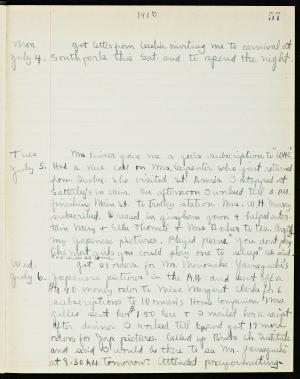 1916 57
Mon. Got letter from Cecelia inviting me to carnival at
July 4. Southpark this Sat. and to spend the night.
Tues. Mrs. gave me a year's subscription to "WHC"
July 5. Had a nice call on Mrs. Carpenter who just returned
from Quebec. She visited St. Anne's. I stopped at
in vain. In afternoon I worked till 5 P.M.
finishing Main St. to trolley station. Mrs. W. H. Murray
subscribed. Dressed in gingham gown & helped enter-
tain Mary & Thomas & Mrs. to tea.
my Japanese pictures. Played piano "you don't play
like most girls you could play one to sleep" he said.
Wed. Got $1 more for Mr.
July 6. Japanese pictures in the A.M. and sent off a
$9.40 money order to Miss Margaret Clarke for 6
subscriptions to Woman's Home Companion. Mrs.
gave me $1.50 here & I mailed her a receipt
After dinner I worked till and got 17 more
orders for Jap pictures. Called up Ch. Institute
and said I would be there to see Mr.
at 8:30 A.M. tomorrow. Attended prayermeeting.